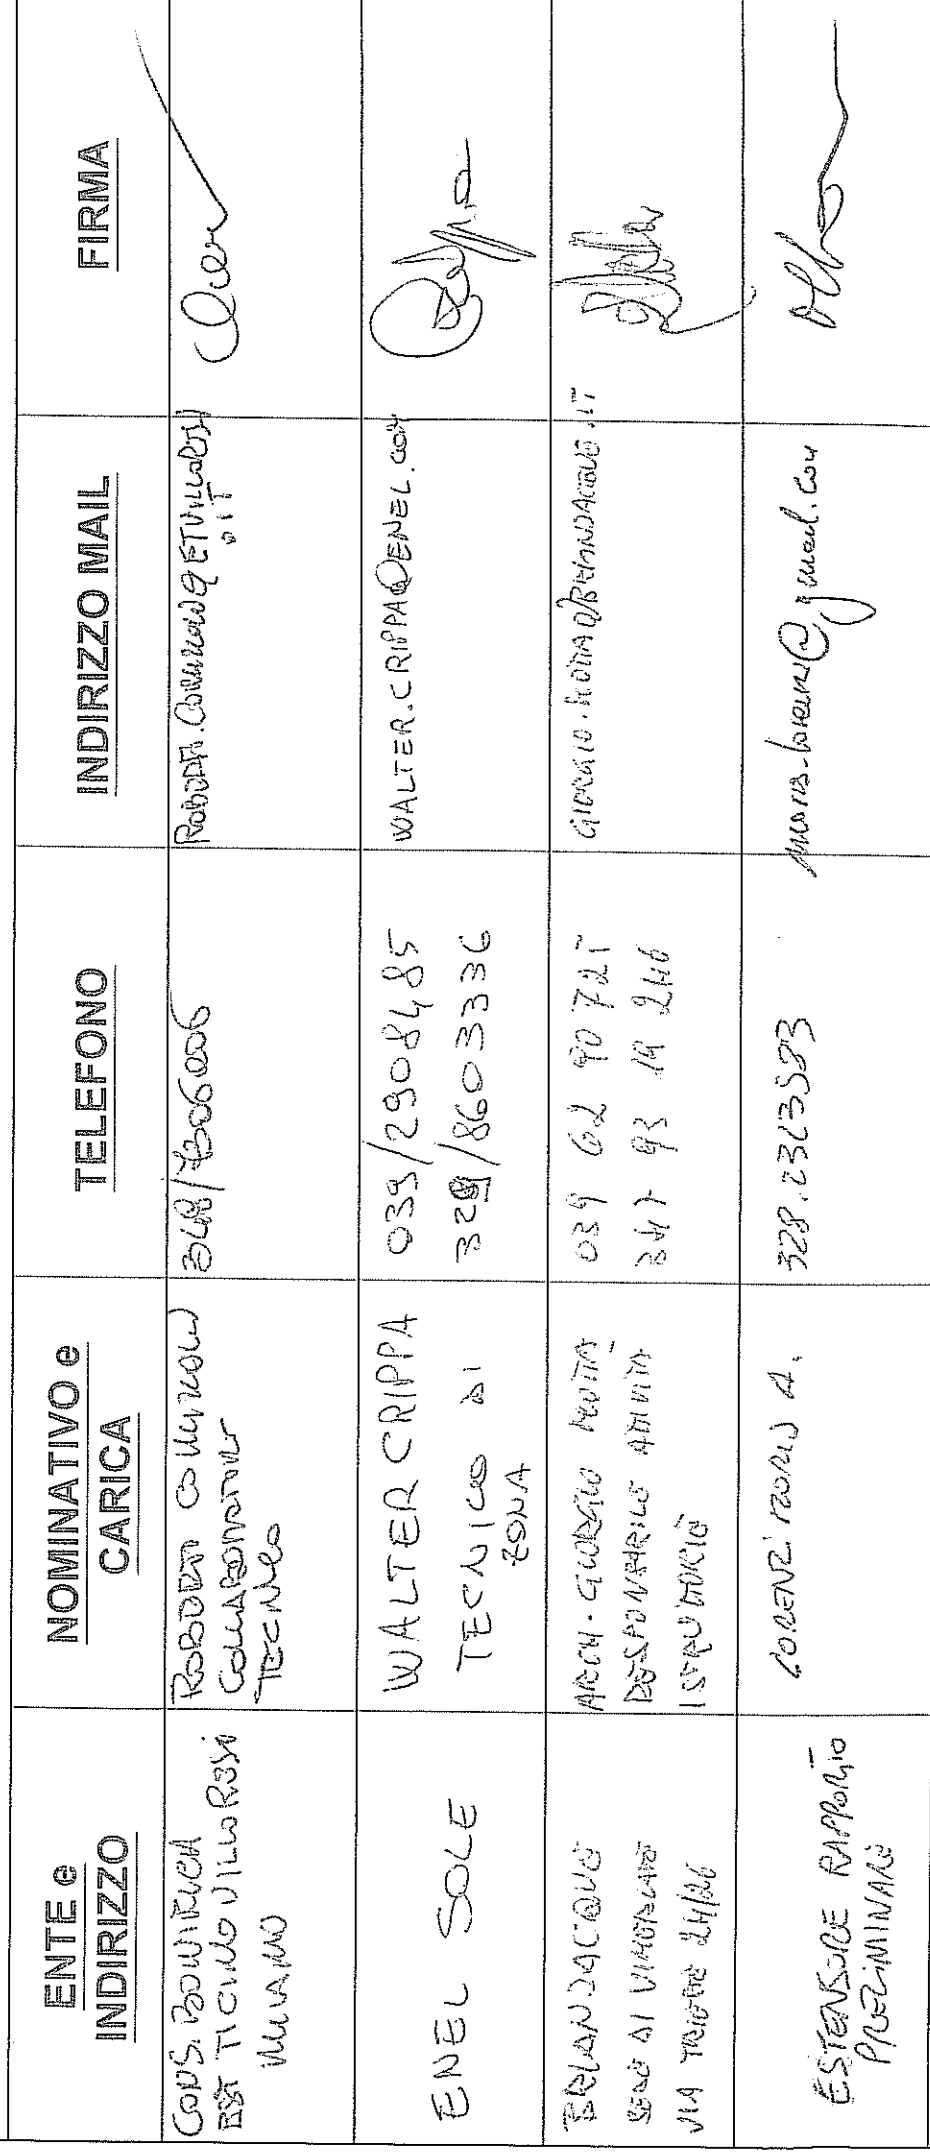 ENTE e INDIRIZZO
NOMINATIVO e CARICA
TELEFONO
INDIRIZZO MAIL
FIRMA
CONS. BONIFICA
EST TICINO VILLORESI
MILANO
ROBERTO
COLLABORATORE
TECNICO
348/7306006
ENEL SOLE
WALTER CRIPPA
TECNICO DI
ZONA
039/2908485
329/8603336
WALTER.CRIPPA@ENEL.COM
BRIANZACQUE
SEDE DI VIMERCATE
VIA TRIESTE 24/26
ARCH. GIORGIO MOTTA
RESPONSABILE ATTIVITÀ
039 62 90 721
347 93 19 246
GIORGIO.MOTTA@BRIANZACQUE.IT
ESTENSORE RAPPORTO
PRELIMINARE
LORENZI MORIS A.
moris.lorenzi@gmail.com